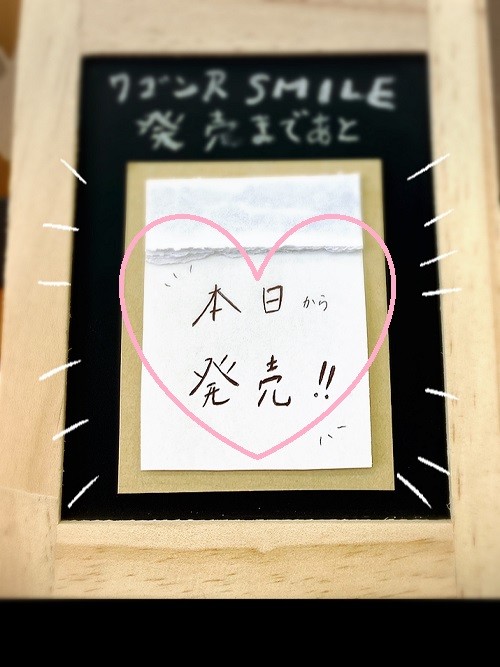 ワゴンR SMILE
発売まであと
本日から
発売!!